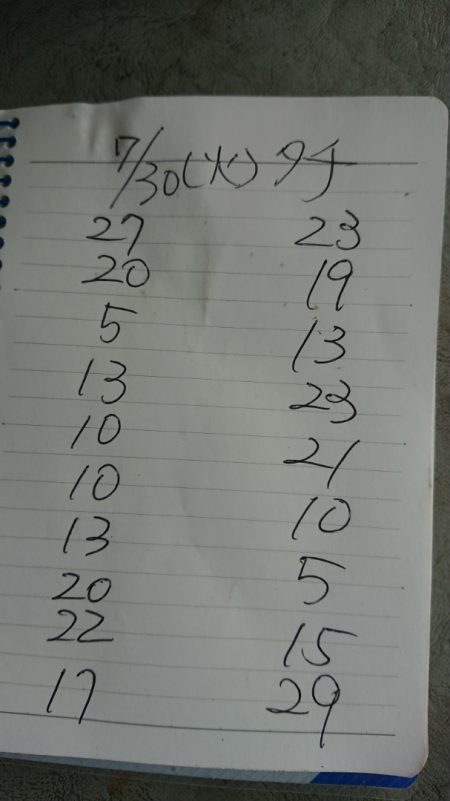 7/30(火)
27 23
20 19
5 13
13 23
10 21
10 10
13 5
20 15
22 29
17